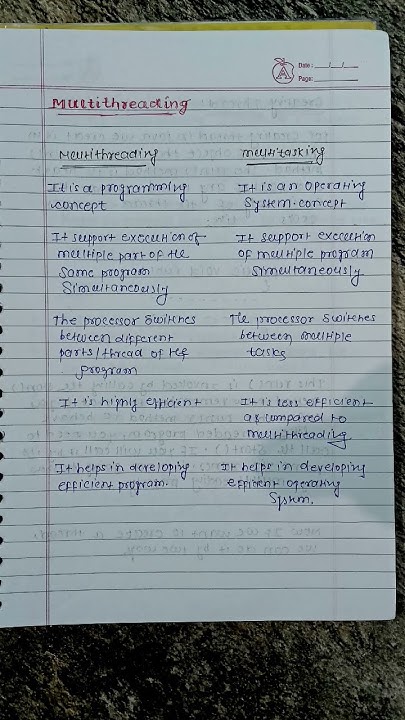 Date:
Page:
Multithreading
Multithreading
It is a programming
concept
It support execution of
multiple part of the
same program
Simultaneously
The processor Switches
between different
parts/thread of the
program
It is highly efficient
It helps in developing
efficient program.
multitasking
It is an operating
System concept
It support execution
of multiple program
Simultaneously
The processor Switches
between multiple
tasks
It is less efficient
as compared to
multithreading
It helps in developing
efficient operating
System.